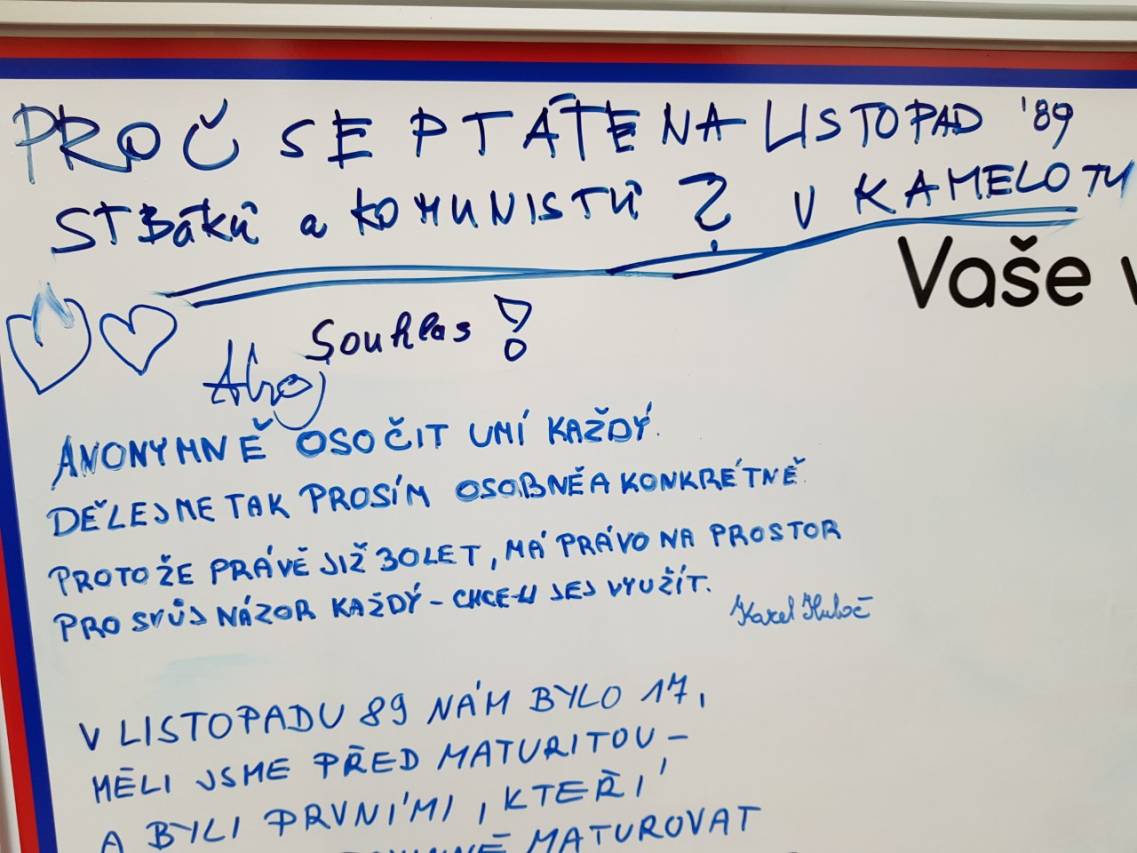 PROČ SE PTÁTE NA LISTOPAD '89
STBáků a KOMUNISTŮ ? V KAMELOTU
Vaše
Souhlas !
Ahoj
ANONYMNĚ OSOČIT UMÍ KAŽDÝ.
DĚLEJME TAK PROSÍM OSOBNĚ A KONKRÉTNĚ.
PROTOŽE PRÁVĚ JIŽ 30 LET, MÁ PRÁVO NA PROSTOR
PRO SVŮJ NÁZOR KAŽDÝ – CHCE-LI JEJ VYUŽÍT.
Karel
V LISTOPADU 89 NÁM BYLO 17,
MĚLI JSME PŘED MATURITOU –
A BYLI PRVNÍMI, KTEŘÍ
MATUROVAT